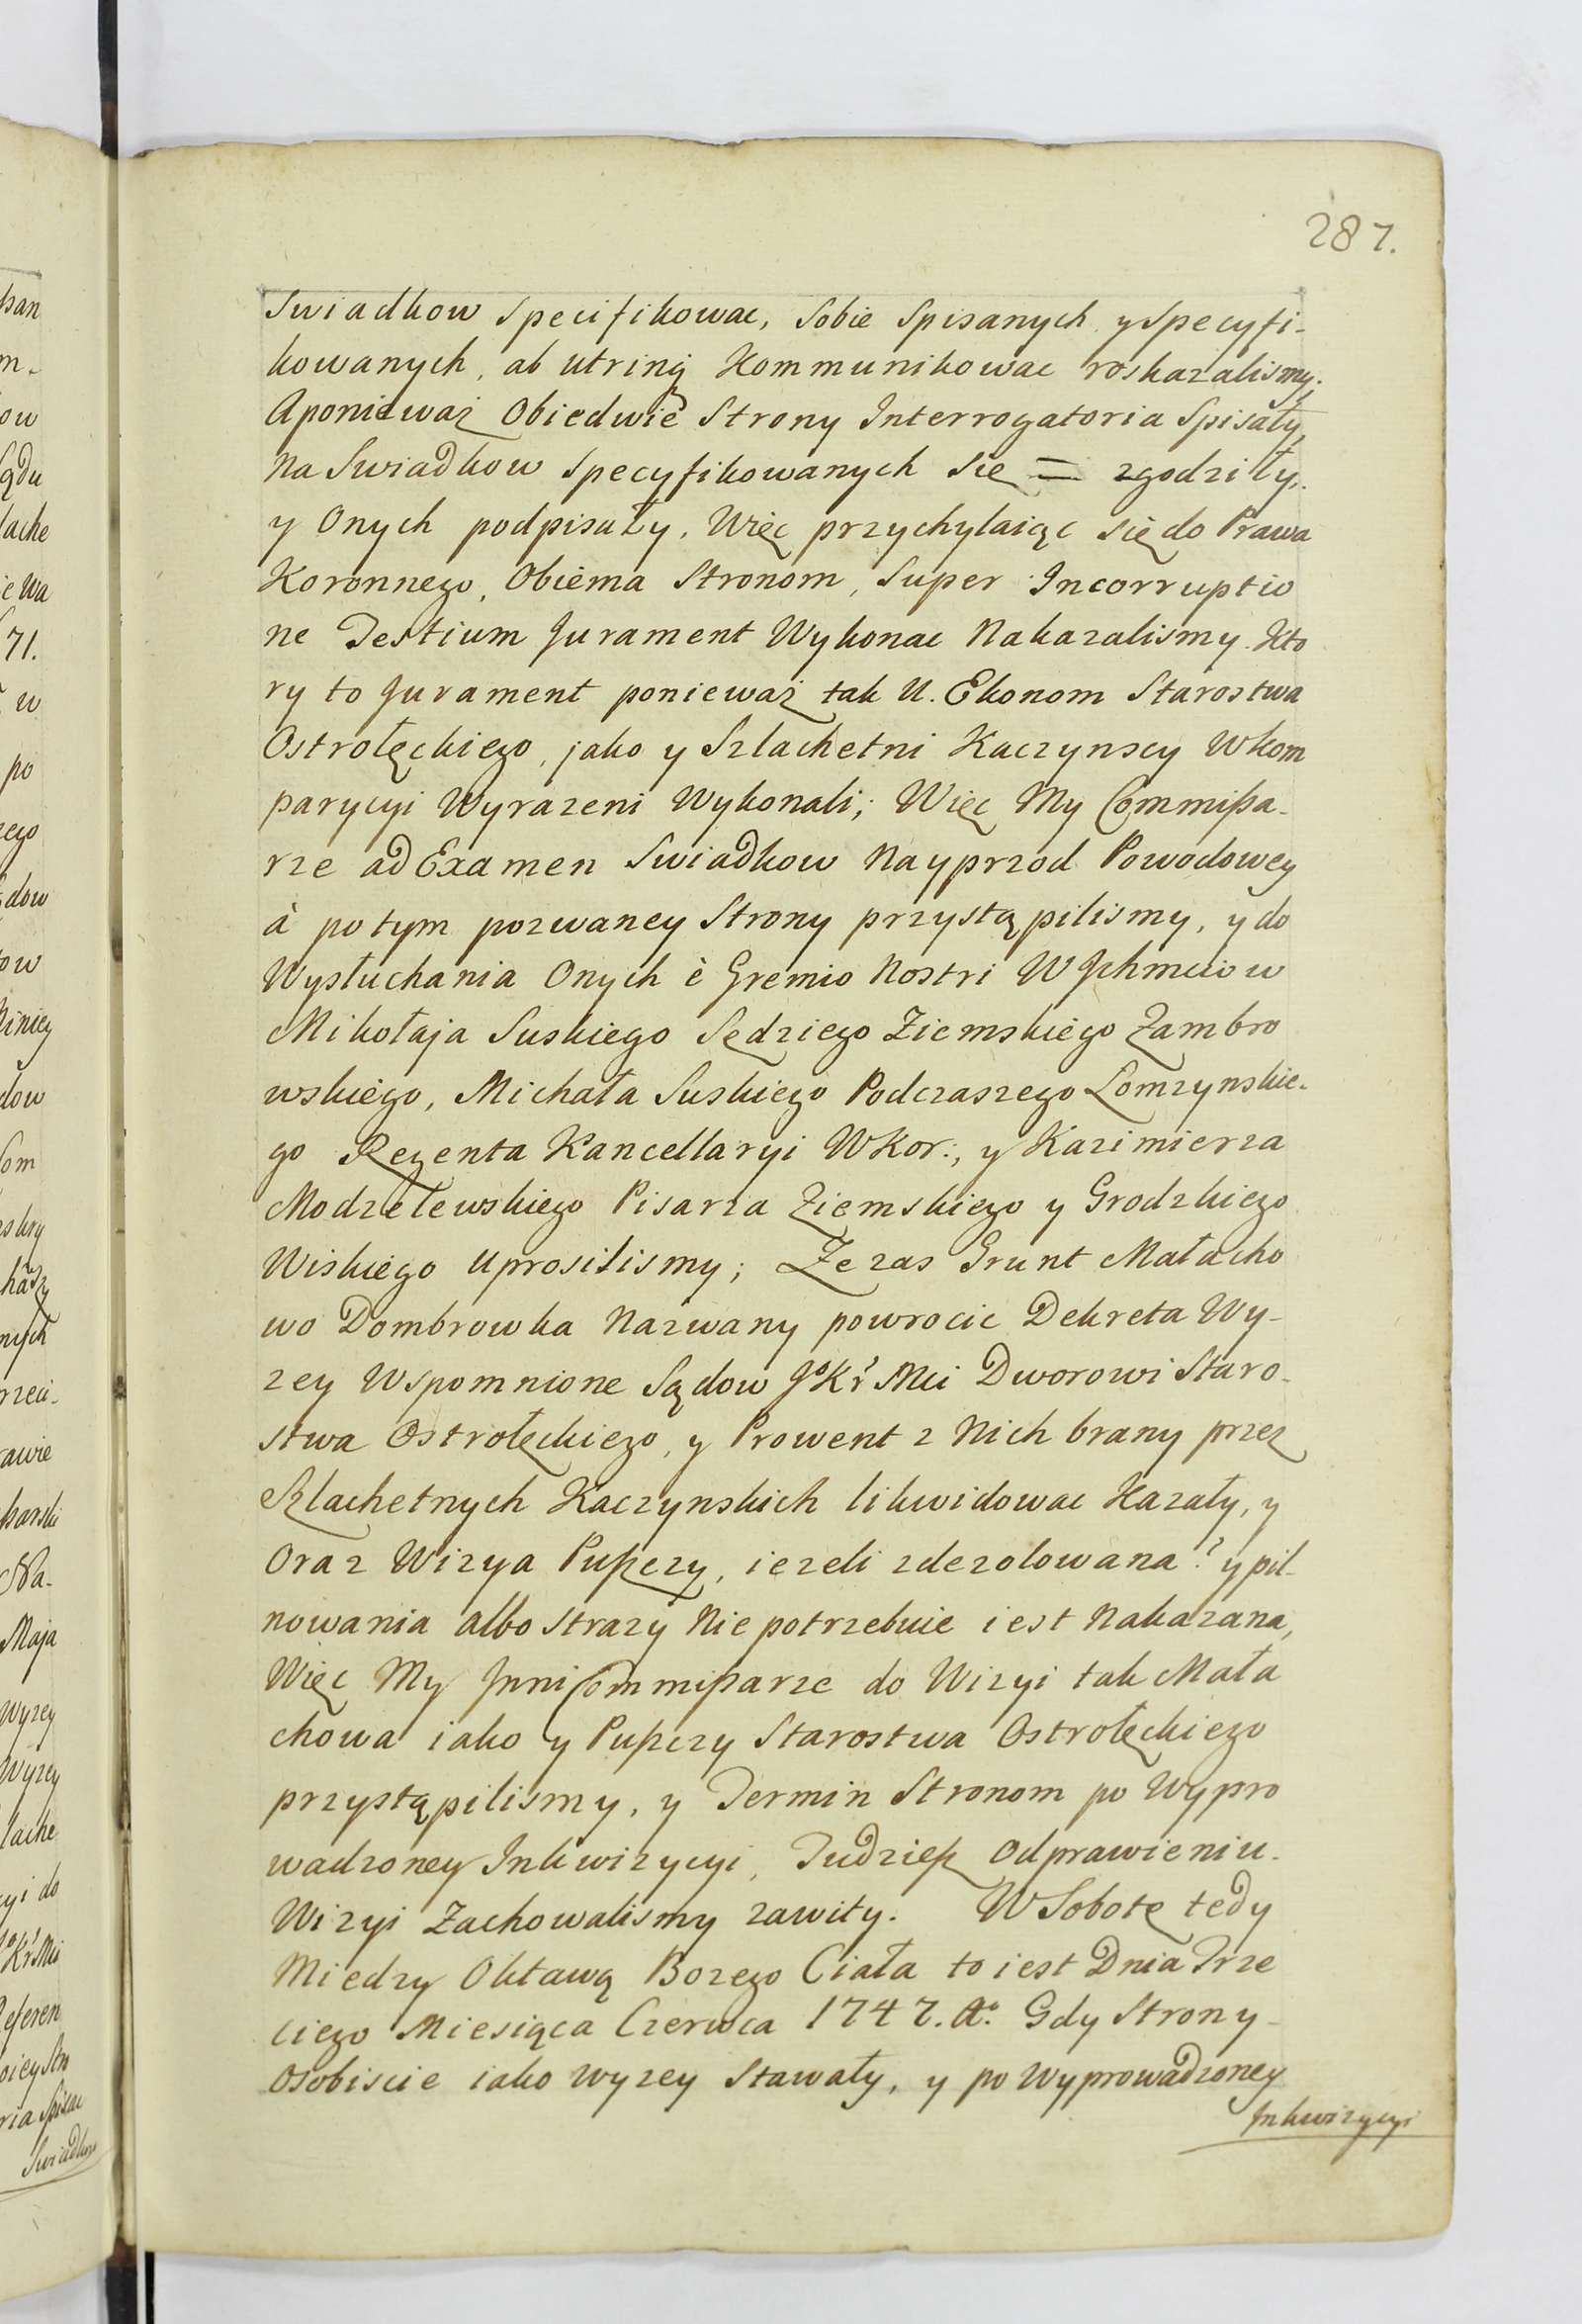 287.
Swiadkow specifikowac, sobie spisanych y specyfi-
kowanych, ab utrinq; Kommunikowac roskazalismy.
Aponieważ Obiedwie Strony Interrogatoria Spisały,
na Swiadkow specyfikowanych się = zgodziły,
y Onych podpisały, Więc przychylaiąc się do Prawa
Koronnego, Obiema Stronom, Super Incorruptio
ne Testium Jurament Wykonac Nakazalismy. Kto
ry to Jurament ponieważ tak U. Ekonom Starostwa
Ostrołęckiego, jako y Szlachetni Kaczynscy Wkom
parycyi Wyrazeni Wykonali; Więc My Commißa-
rze ad Examen Swiadkow Nayprzod Powodowey
à potym pozwaney Strony przystąpilismy, y do
Wysłuchania Onych è Gremio Nostri W Jchmciow
Mikołaja Suskiego Sędziego Ziemskiego Zambro
wskiego, Michała Suskiego Podczaszego Łomzynskie-
go Regenta Kancellaryi WKor:, y Kazimierza
Modzelewskiego Pisarza Ziemskiego y Grodzkiego
Wiskiego uprosilismy; Ze zas Grunt Małacho
wo Dombrowka Nazwany powrocic Dekreta Wy-
zey Wspomnione Sądow JoKr Mci Dworowi Staro-
stwa Ostrołęckiego, y Prowent z Nich brany przez
Szlachetnych Kaczynskich likwidowac Kazały, y
Oraz Wizya Pußczy, iezeli zdezolowana? y pil-
nowania albo strazy Nie potrzebuie iest Nakazana,
Więc My Jnni Commißarze do Wizyi tak Mała
chowa iako y Pußczy Starostwa Ostrołęckiego
przystąpilismy, y Termin Stronom po Wypro
wadzoney Inkwizycyi, Tudzieß Odprawieniu
Wizyi Zachowalismy zawity. W Sobotę tedy
Miedzy Oktawą Bozego Ciała to iest Dnia Trze
ciego Miesiąca Czerwca 1747. Ao. Gdy Strony
Osobiscie iako wyzey Stawały, y po Wyprowadzoney
Inkwizycyi